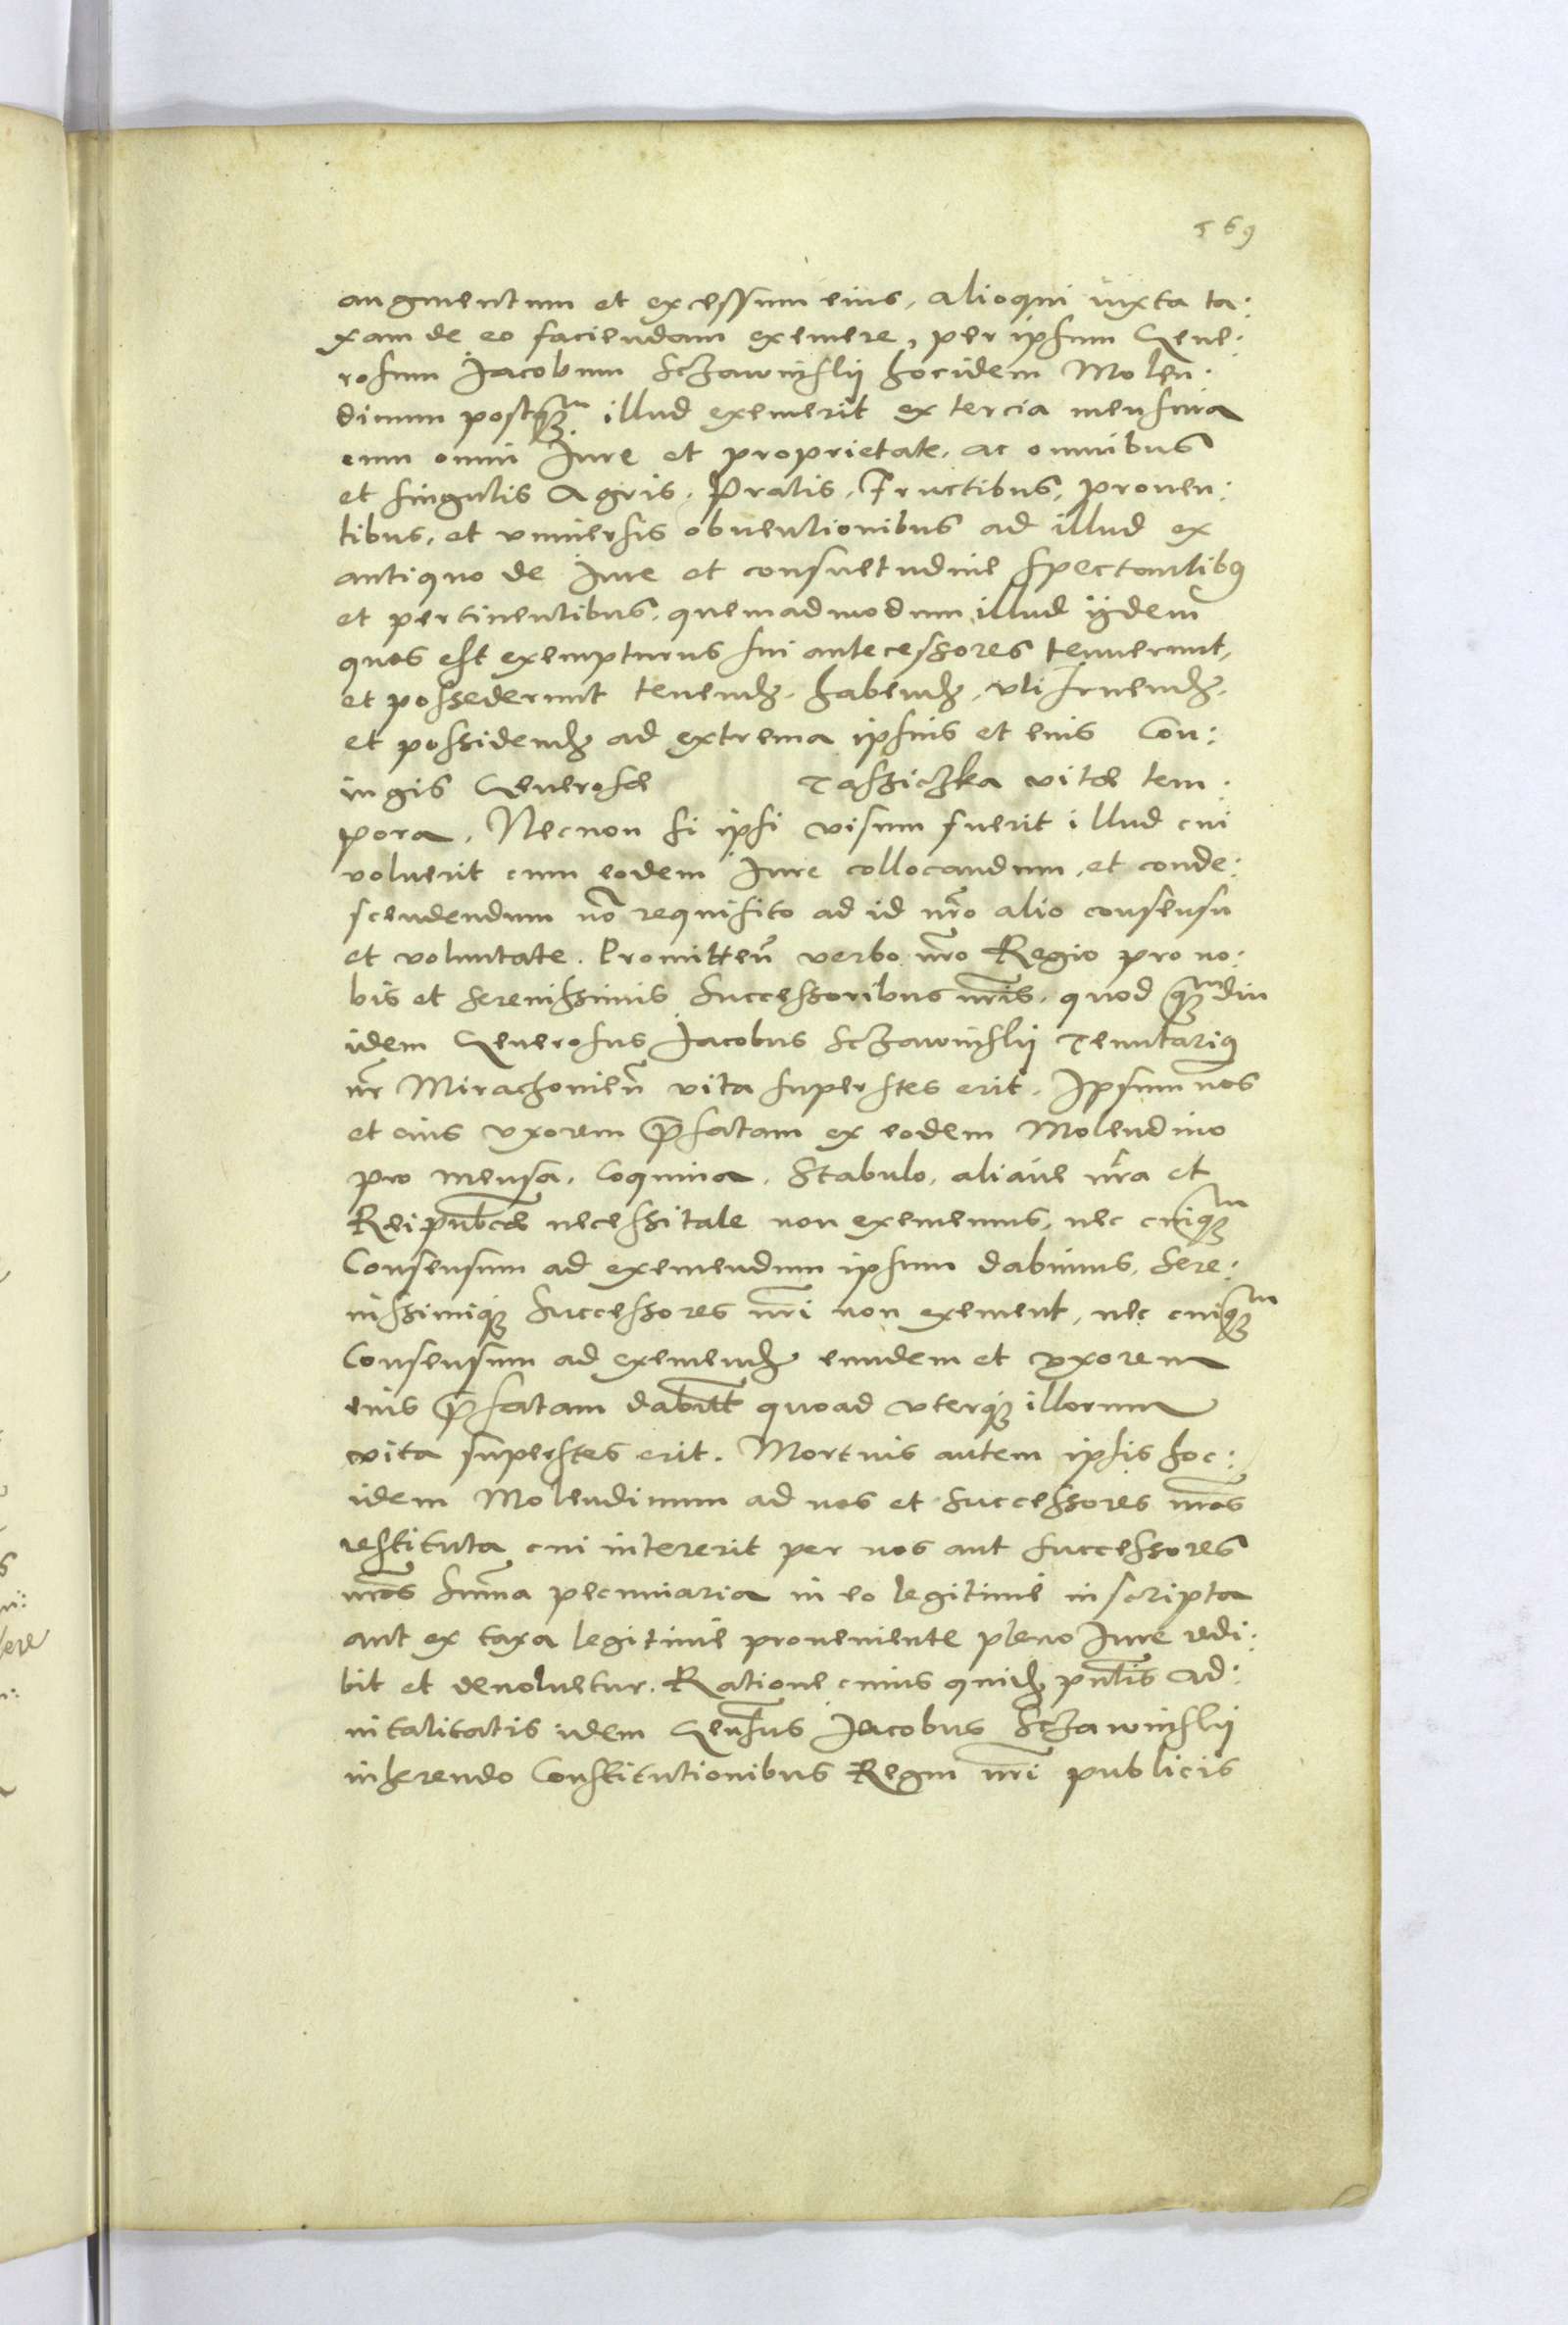 569
augmentum et excessum eius, alioqui iuxta ta:
xam de eo faciendam exemere, per ipsum Gene:
rosum Jacobum Sczawinſkij hocidem Molen:
dinum postqȝᵐ illud exemerit ex tercia mensura
cum omni Iure et proprietate, ac omnibus
et singulis Agris, Pratis, Fructibus, prouen:
tibus, et vniuersis obuentionibus ad illud ex
antiquo de Iure et consuetudine spectantibꝰ
et pertinentibus, quemadmodum illud ijdem
quos est exempturus sui antecessores tenuerunt,
et possederunt tenendȝ, habendȝ, vti fruendȝ,
et possidendȝ ad extrema ipsius et eius Con:
iugis Generosæ Tassiczka vitæ tem:
pora, Necnon si ipsi visum fuerit illud cui
voluerit cum eodem Iure collocandum, et conde:
scendendum nō requisito ad id nr̃o alio consensu
et voluntate. Promitteñ verbo nr̃o Regio pro no:
bis et serenissimis Successoribus nr̃is, quod qȝᵐdiu
idem Generosus Jacobus Sczawinſkij Tenutariꝰ
nr̃ Mirachonieñ vita superstes erit, Ipsum nos
et eius vxorem p̃fatam ex eodem Molendino
pro mensa, Coquina, Stabulo, aliaue nr̃a et
Reipub̃cæ necessitate non exememus, nec cuiqȝᵐ
Consensum ad exemendum ipsum dabimus, Sere:
nissimiqȝ Successores nr̃i non exement, nec cuiqȝᵐ
Consensum ad exemendȝ eundem et vxorem
eius p̃fatam dabũt quoad vterqȝ illorum
vita superstes erit. Mortuis autem ipsis hoc:
idem Molendinum ad nos et Successores nr̃os
restituta cui intererit per nos aut successores
nr̃os sum̃a pecuniaria in eo legitimè inscripta
aut ex taxa legitimè proueniente pleno Iure redi:
bit et deuoluetur. Ratione cuius quidȝ pñtis ad:
uitalitatis idem Geñsus Jacobus Sczawinſkij
inherendo Constitutionibus Regni nr̃i publicis